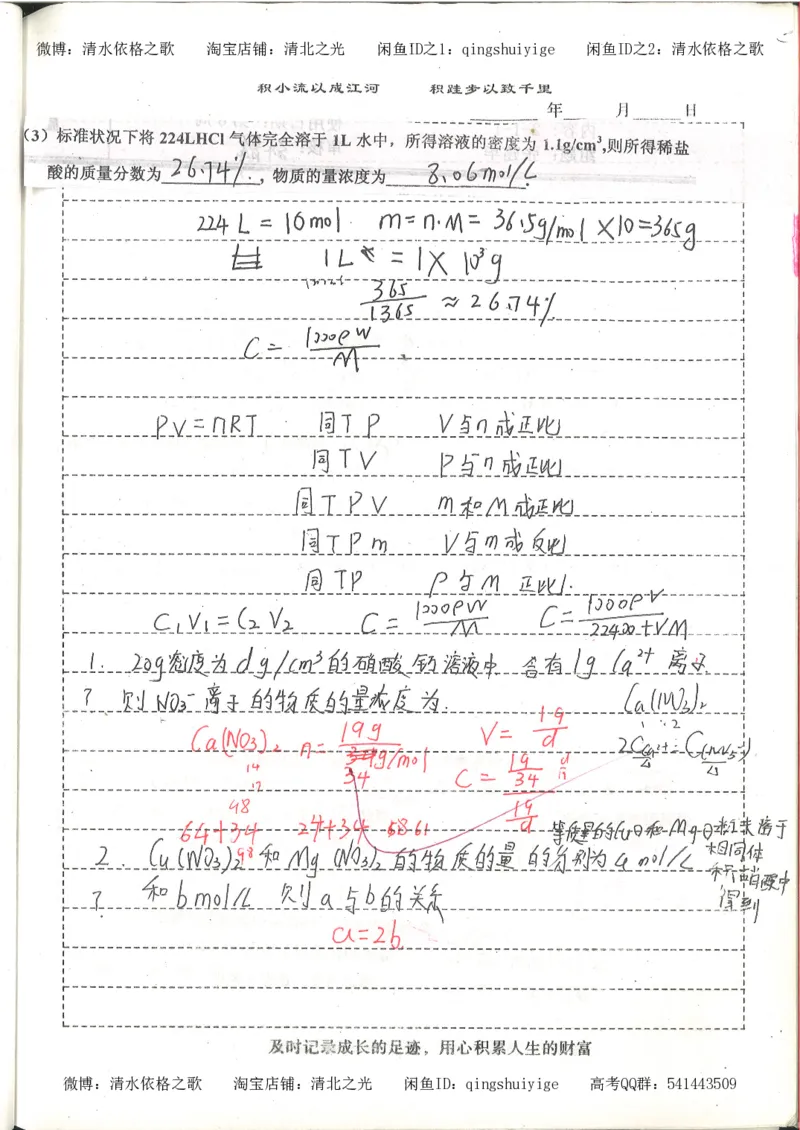 微博：清水依格之歌 淘宝店铺：清北之光 闲鱼ID之1：qingshuiyige 闲鱼ID之2：清水依格之歌
积小流以成江河 积跬步以致千里
年 月 日
(3) 标准状况下将 224LHCl 气体完全溶于 1L 水中，所得溶液的密度为 1.1g/cm³,则所得稀盐
酸的质量分数为 26.74%，物质的量浓度为 8.06mol/L
224L = 10mol m=n·M= 36.5g/mol ×10=365g
1L = 1×10³g
365/1365 ≈ 26.74%
C= 1000ρW/M
PV=nRT 同TP V与n成正比
同TV P与n成正比
同TPV m和M成正比
同TPm V与m成反比
同TP ρ与M 正比.
C₁V₁=C₂V₂ C=1000ρW/M C=1000ρV/22400+VM
1. 20g密度为dg/cm³的硝酸钙溶液中 含有1g Ca²⁺ 离子
? 则NO₃⁻离子的物质的量浓度为
Ca(NO₃)₂
1:2
Ca(NO₃)₂ n=19g/34g/mol V=19/d
C=
14
48
64+34 24+34
等质量的CuO和MgO粉末溶于
相同体
积硝酸中
得到
2. Cu(NO₃)₂和Mg(NO₃)₂的物质的量的分别为a mol/L
? 和bmol/L 则a与b的关系
a=2b
及时记录成长的足迹，用心积累人生的财富
微博：清水依格之歌 淘宝店铺：清北之光 闲鱼ID：qingshuiyige 高考QQ群：541443509